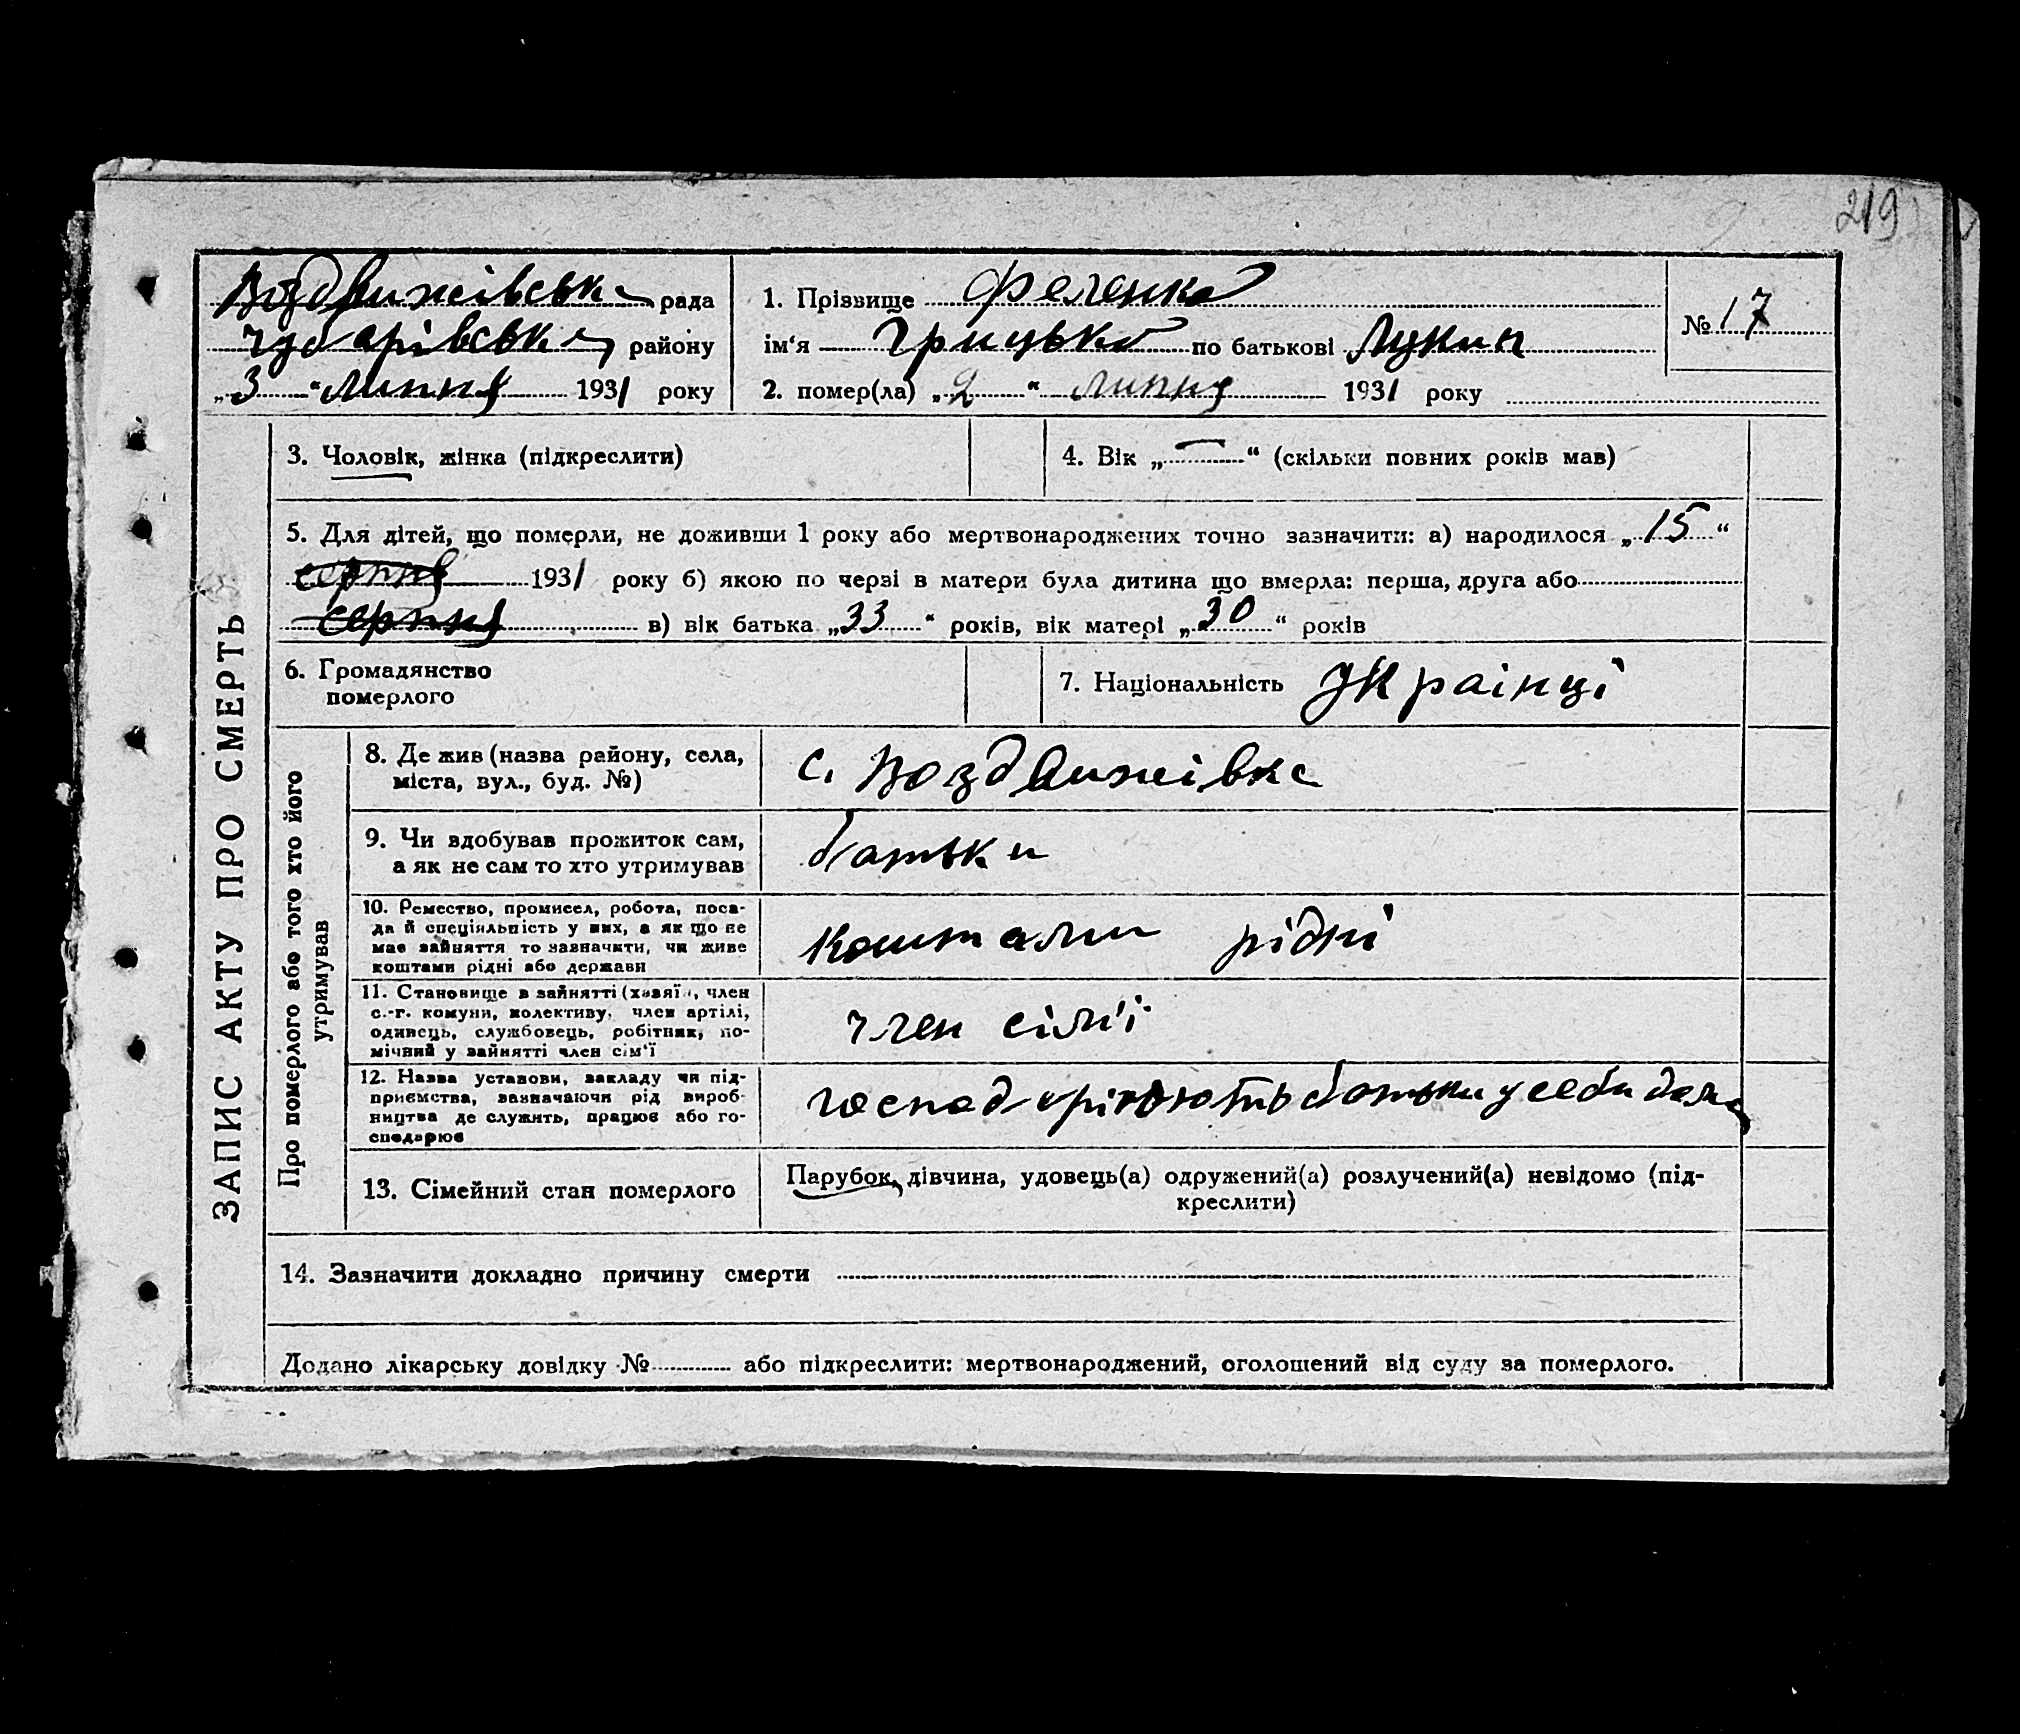 219
Воздвижівська рада
Чубарівська району
„3“ липня 1931 року
1. Прізвище Феленко
ім‘я Грицько по батькові Лукич
2. помер(ла) „2“ липня 1931 року
№ 17
ЗАПИС АКТУ ПРО СМЕРТЬ
3. Чоловік, жінка (підкреслити)
4. Вік „—“ (скільки повних років мав)
5. Для дітей, що померли, не доживши 1 року або мертвонароджених точно зазначити: а) народилося „15“
серпня 1931 року б) якою по черзі в матери була дитина що вмерла: перша, друга або
серпня в) вік батька „33“ років, вік матері „30“ років
6. Громадянство
померлого
7. Національність Украінці
Про померлого або того хто його
утримував
8. Де жив (назва району, села,
міста, вул., буд. №)
с. Воздвижівка
9. Чи вдобував прожиток сам,
а як не сам то хто утримував
батьки
10. Ремество, промисел, робота, поса-
да й спеціяльність у них, а як що не
має зайняття то зазначити, чи живе
коштами рідні або держави
коштами рідні
11. Становище в зайнятті (хазяїн, член
с.-г. комуни, колективу, член артілі,
одивець, службовець, робітник, по-
мічний у зайнятті член сім‘ї
член сім'ї
12. Назва установи, закладу чи під-
приємства, зазначаючи рід вироб-
ництва де служить, працює або го-
сподарює
господарюють батьки у себи дома
13. Сімейний стан померлого
Парубок, дівчина, удовець(а) одружений(а) розлучений(а) невідомо (під-
креслити)
14. Зазначити докладно причину смерти
Додано лікарську довідку № або підкреслити: мертвонароджений, оголошений від суду за померлого.